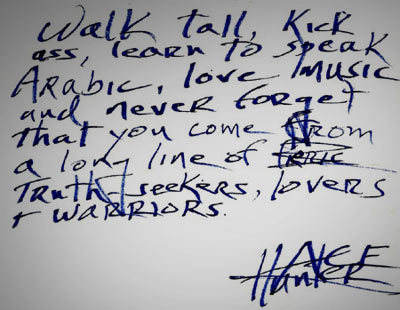 Walk tall, Kick
ass, learn to speak
Arabic, love music
and never forget
that you come from
a long line of
Truth seekers, lovers
+ WARRIORS.